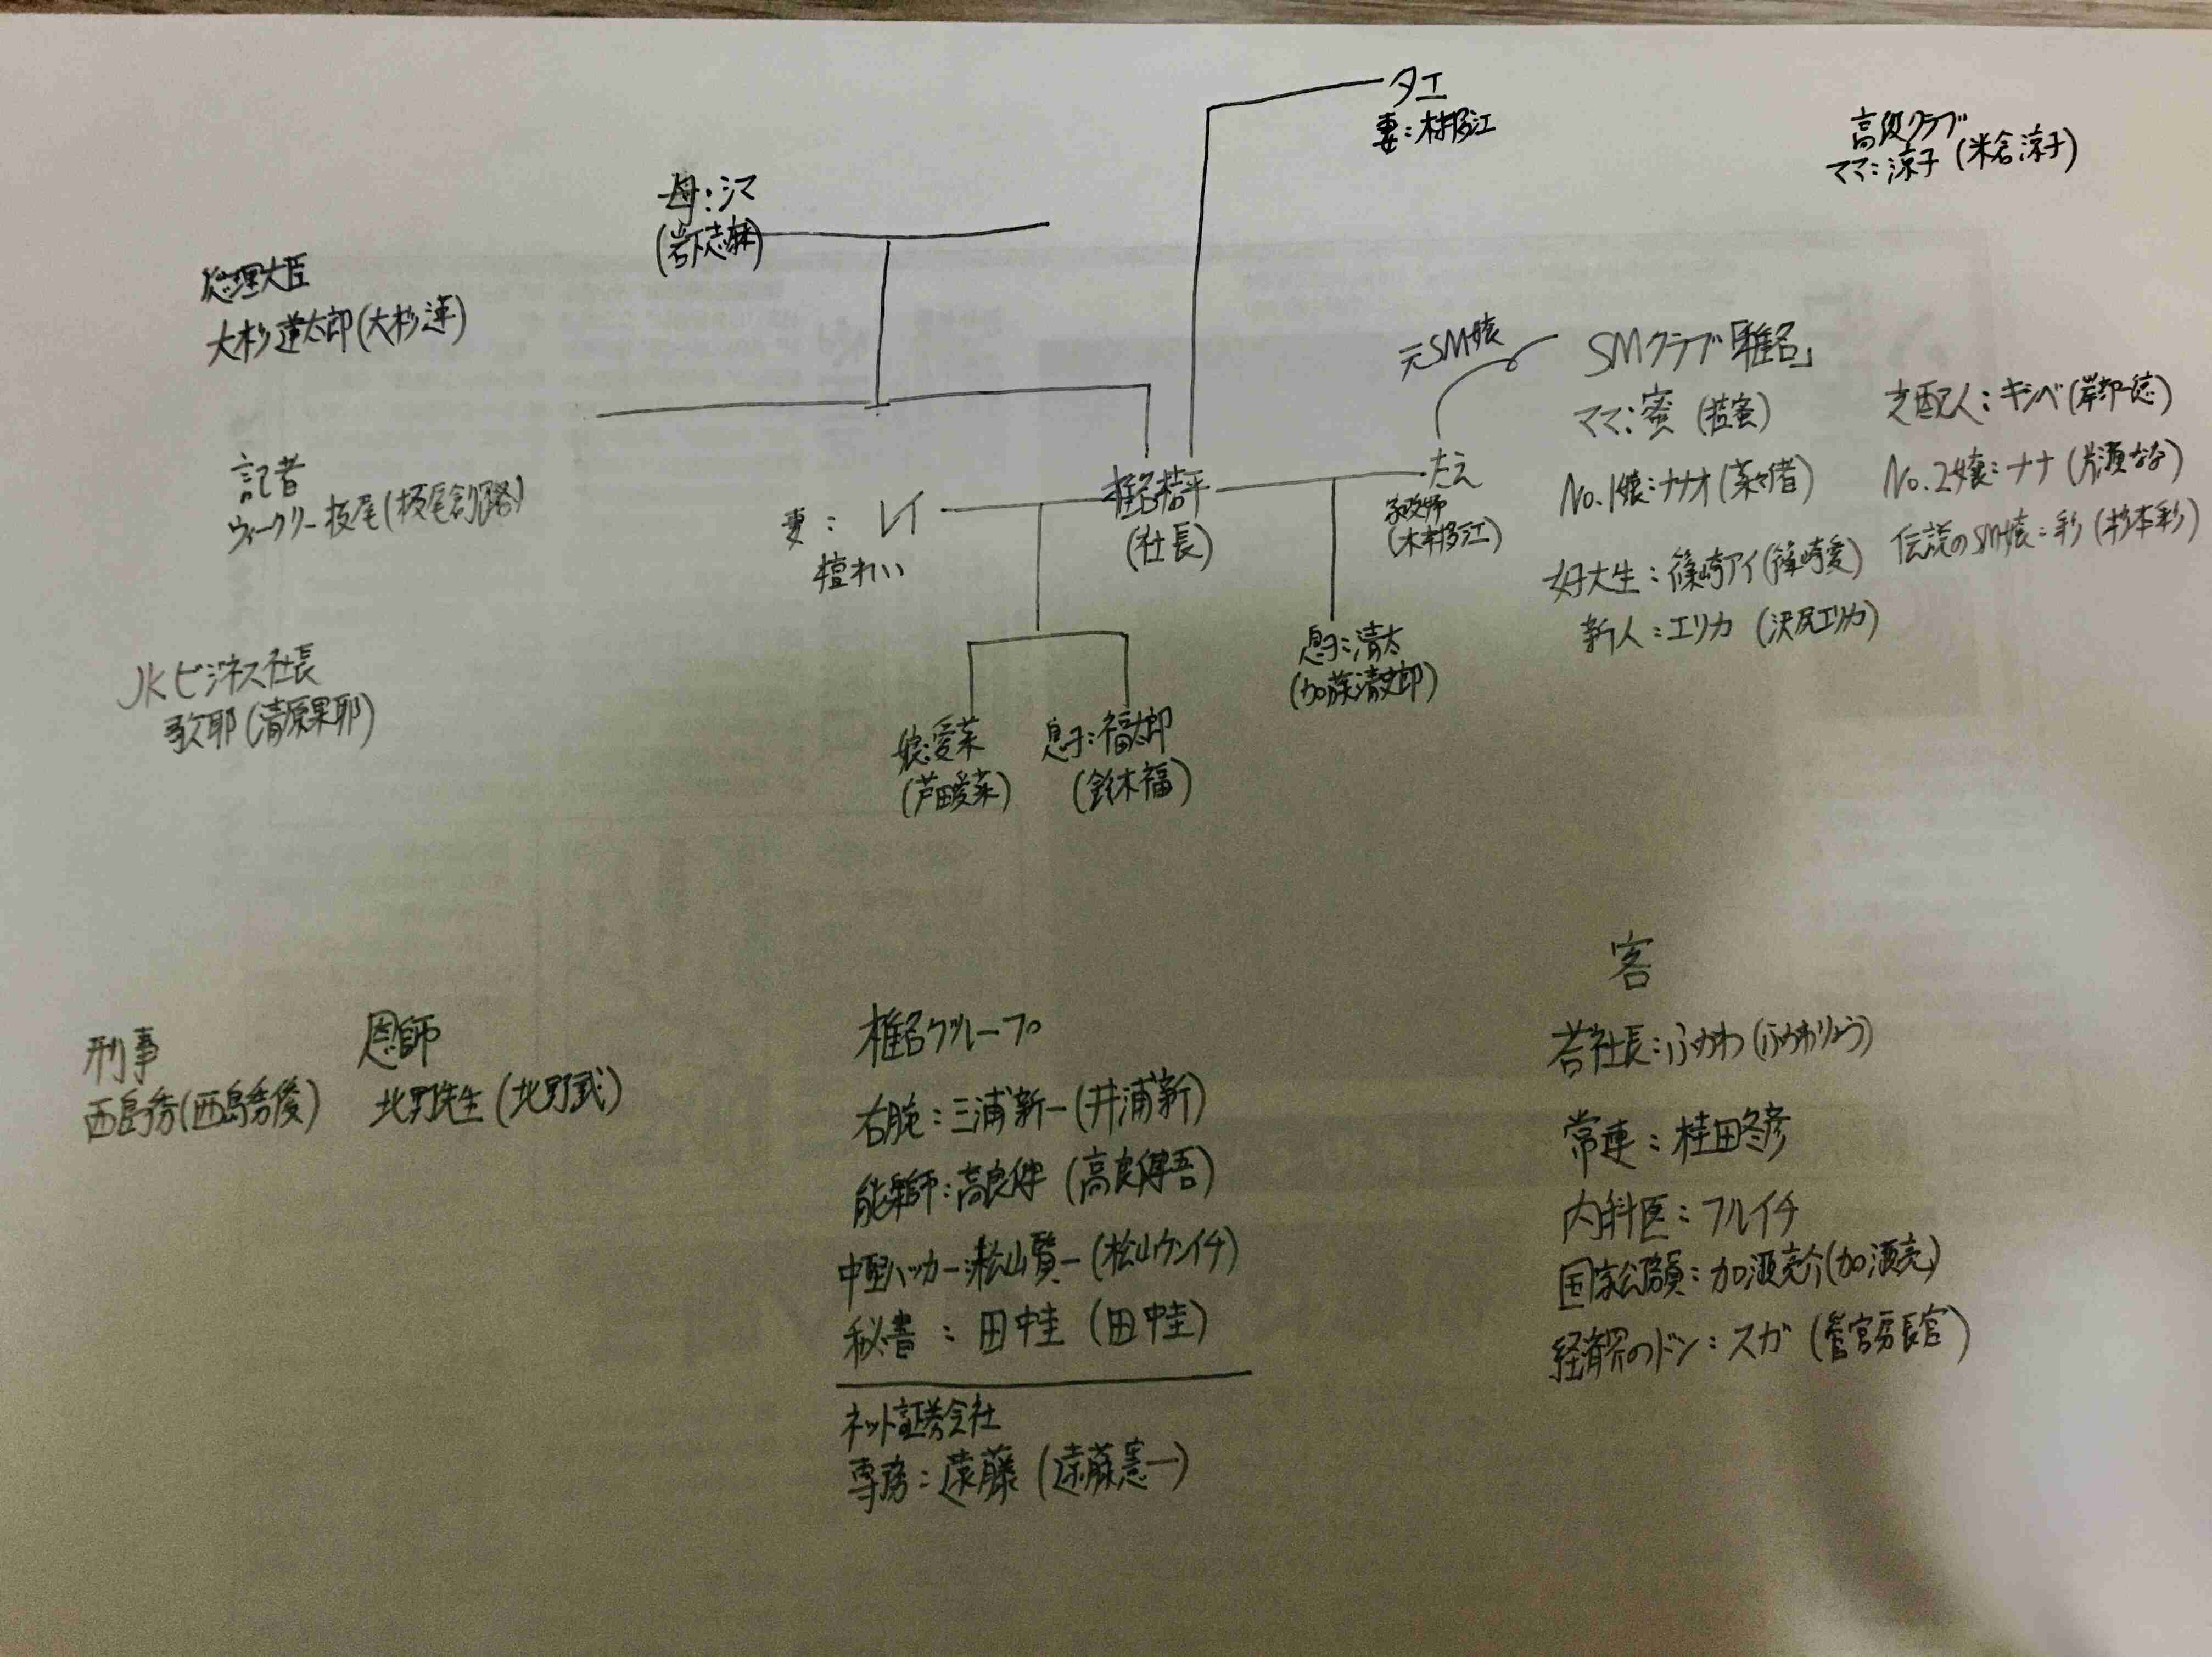 タエ
妻：木村多江
高級クラブ
ママ：涼子（米倉涼子）
母：シマ
（岩下志麻）
総理大臣
大杉蓮太郎（大杉漣）
元SM嬢
SMクラブ「椎名」
ママ：蜜（壇蜜）
支配人：キシベ（岸部一徳）
No.1嬢：ナナオ（菜々緒）
No.2嬢：ナナ（片瀬なな）
女子大生：篠崎アイ（篠崎愛）
伝説のSM嬢：彩（杉本彩）
新人：エリカ（沢尻エリカ）
記者
ウィークリー板尾（板尾創路）
妻：レイ
檀れい
椎名桔平
（社長）
たえ
家政婦
（木村多江）
息子：清太
（加藤清史郎）
JKビジネス社長
（清原果耶）
娘：愛菜
（芦田愛菜）
息子：福太郎
（鈴木福）
刑事
西島秀（西島秀俊）
恩師
北野先生（北野武）
椎名グループ
右腕：三浦新一（井浦新）
能楽師：高良健（高良健吾）
中堅ハッカー：松山賢一（松山ケンイチ）
秘書：田中圭（田中圭）
ネット証券会社
専務：遠藤（遠藤憲一）
客
若社長：ふかわ（ふかわりょう）
常連：桂田冬彦
内科医：フルイチ
国家公務員：加瀬亮介（加瀬亮）
経済界のドン：スガ（菅官房長官）